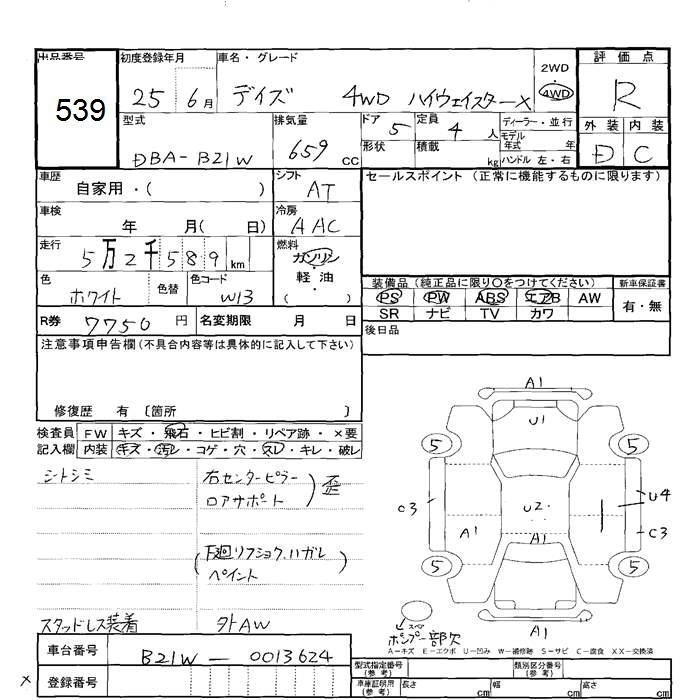 出品番号 初度登録年月 車名・グレード 2WD・4WD 評価点
539 25 6月 デイズ 4WD ハイウェイスターX R
型式 排気量 ドア 5 定員 4人 ディーラー・並行 外装 内装
DBA-B21W 659 cc 形状 積載 kg モデル年式 年 D C
ハンドル 左・右
車歴 自家用・( ) シフト AT セールスポイント (正常に機能するものに限ります)
車検 年 月( 日) 冷房 AAC
走行 5万2千589km 燃料 ガソリン・軽油・( )
色 ホワイト 色替 色コード W13
装備品 (純正品に限り○をつけてください) 新車保証書
PS PW ABS エアB AW 有・無
SR ナビ TV カワ
R券 7750円 名変期限 月 日 後日品
注意事項申告欄 (不具合内容等は具体的に記入して下さい)
修復歴 有 〔箇所 〕
検査員 FW キズ・飛石・ヒビ割・リペア跡・×要
記入欄 内装 キズ・汚レ・コゲ・穴・スレ・キレ・破レ
シートシミ 右センターピラー
ロアサポート ) 歪
(下廻リフショク,ハガレ
ペイント )
スタッドレス装着 外AW
A1
U1
5 5
C3 U4
U2
A1 A1 C3
5 5
A1
スペア
ポンプ一部欠
A-キズ E-エクボ U-凹み W-補修跡 S-サビ C-腐食 XX-交換済
車台番号 B21W-0013624
× 登録番号
型式指定番号 (参考) 類別区分番号 (参考)
車庫証明用 (参考) 長さ cm 幅 cm 高さ cm